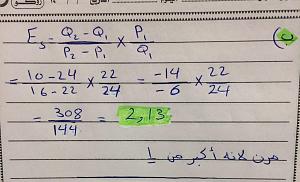 (ب)
Es = Q₂ - Q₁ / P₂ - P₁ × P₁ / Q₁
= 10 - 24 / 16 - 22 × 22 / 24 = -14 / -6 × 22 / 24
= 308 / 144 = 2,13
مرن لانه أكبر من 1